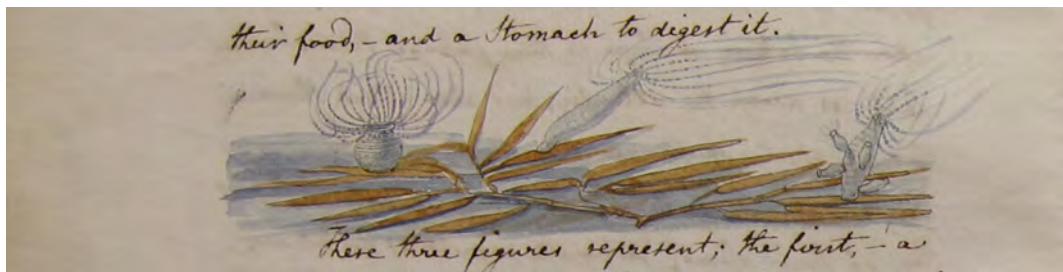 their food, - and a Stomach to digest it.
These three figures represent; the first, - a